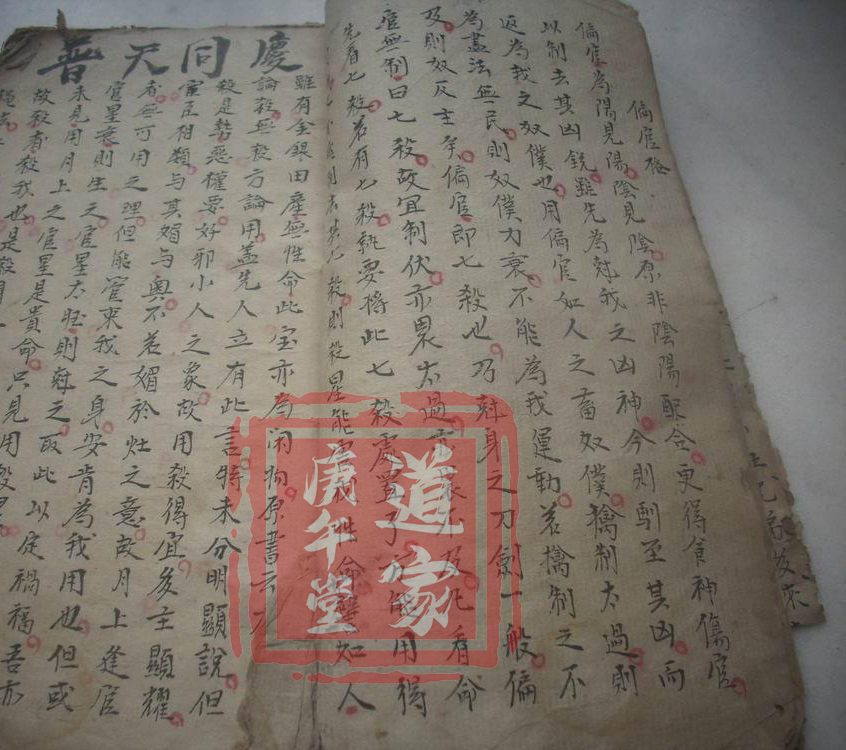 偏官格
偏官為陽見陽陰見陰原非陰陽配合更得食神傷官
以制去其凶銳雖先為尅我之凶神今則馴至其凶而
返為我之奴僕也用偏官如人之畜奴僕擒制太過則
為盡法無民則奴僕力衰不能為我運動若擒制之不
及則奴反主矣偏官即七殺也乃尅身之刀劍一般偏
官無制曰七殺故宜制伏亦畏太過亦畏不及凡看命
先看七殺若有七殺就要將此七殺處置了方能用得
則去其七殺則殺星能害我性命譬如人
普天同慶
雖有金銀田產無性命此宝亦為閑物原書云
論殺無殺方論用盖先人立有此言特未分明顯說但
殺是勢惡權要好邪小人之象故用殺得宜多主顯耀
宦臣相類與其媚與奧不若媚於灶之意故月上逢官
者無可用之理但能管束我之身安肯為我用也但或
官星衰則生之官星太旺則尅之取此以定禍福吾亦
未見用月上之官星是貴命只見用殺星
故殺者殺我也是殺
道家
庚午堂